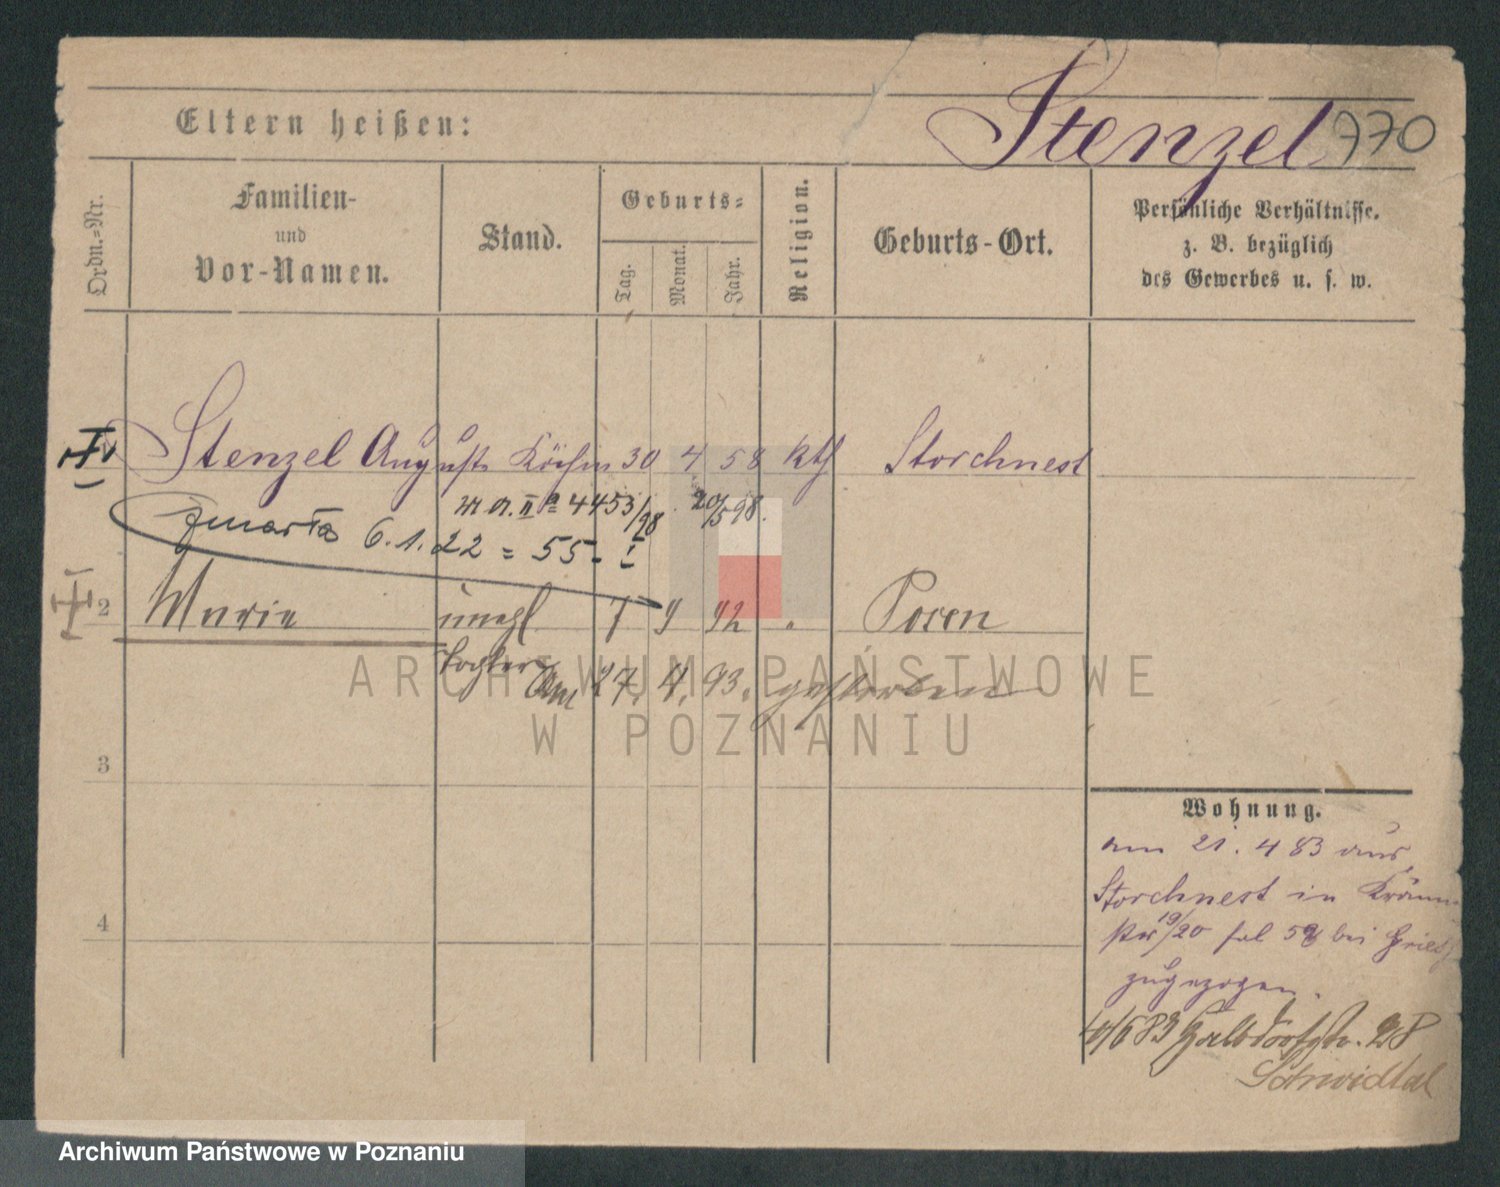 Eltern heißen:
Stenzel 970
Ordn.-Nr.
Familien-
und
Vor-Namen.
Stand.
Geburts-
Tag.
Monat.
Jahr.
Religion.
Geburts-Ort.
Persönliche Verhältnisse.
z. B. bezüglich
des Gewerbes u. s. w.
Stenzel August Köchin 30 4 58 kth Storchnest
m A. II a 4453/98 20/5 98.
zmarła 6.1.22 = 55-I
2 Marie unehl 7 9 92 Posen
Tochter
Am 27. 4. 93. gestorben
3
4
Wohnung.
am 21. 4 83 aus
Storchnest in Kräm
str 19/20 bei
zugezogen.
83 Halbdorfstr. 28
ARCHIWUM PAŃSTWOWE
W POZNANIU
Archiwum Państwowe w Poznaniu